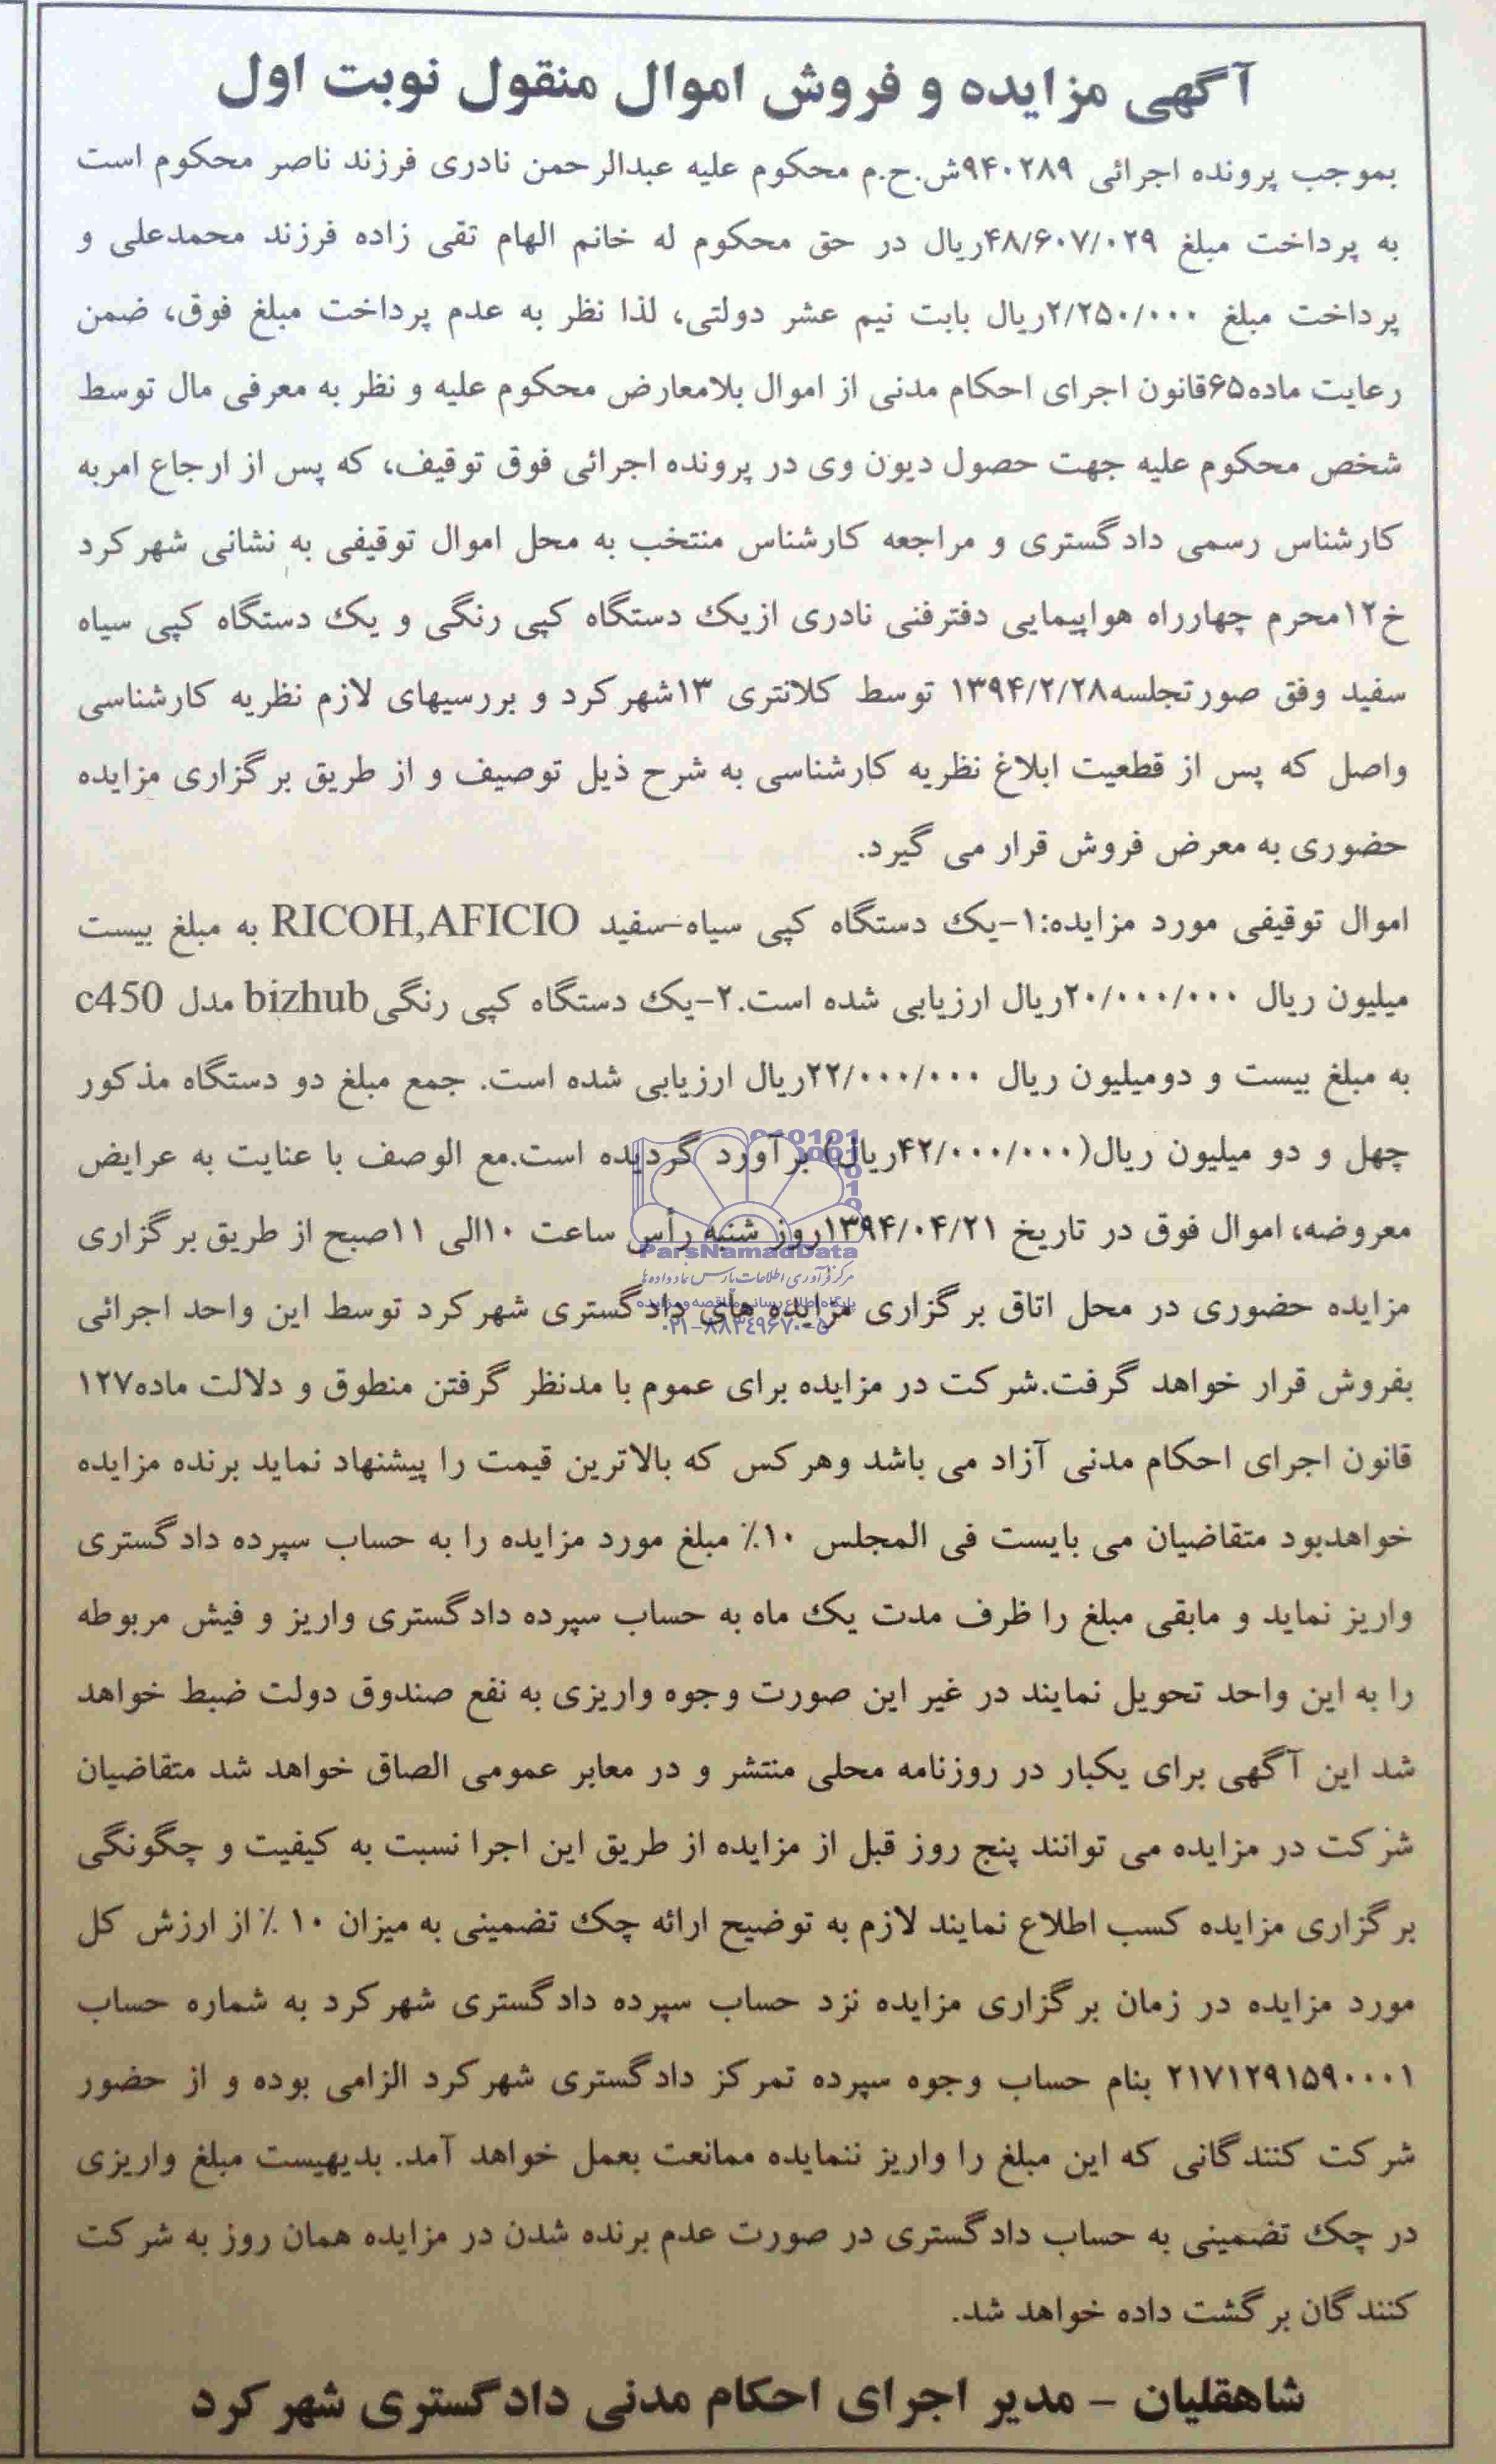 آگهی مزایده و فروش اموال منقول نوبت اول
بموجب پرونده اجرائی ۹۴۰۲۸۹ش.ح.م محکوم علیه عبدالرحمن نادری فرزند ناصر محکوم است
به پرداخت مبلغ ۴۸/۶۰۷/۰۲۹ریال در حق محکوم له خانم الهام تقی زاده فرزند محمدعلی و
پرداخت مبلغ ۲/۲۵۰/۰۰۰ریال بابت نیم عشر دولتی، لذا نظر به عدم پرداخت مبلغ فوق، ضمن
رعایت ماده۶۵قانون اجرای احکام مدنی از اموال بلامعارض محکوم علیه و نظر به معرفی مال توسط
شخص محکوم علیه جهت حصول دیون وی در پرونده اجرائی فوق توقیف، که پس از ارجاع امربه
کارشناس رسمی دادگستری و مراجعه کارشناس منتخب به محل اموال توقیفی به نشانی شهرکرد
خ۱۲محرم چهارراه هواپیمایی دفترفنی نادری ازیک دستگاه کپی رنگی و یک دستگاه کپی سیاه
سفید وفق صورتجلسه۱۳۹۴/۲/۲۸ توسط کلانتری ۱۳شهرکرد و بررسیهای لازم نظریه کارشناسی
واصل که پس از قطعیت ابلاغ نظریه کارشناسی به شرح ذیل توصیف و از طریق برگزاری مزایده
حضوری به معرض فروش قرار می گیرد.
اموال توقیفی مورد مزایده:۱-یک دستگاه کپی سیاه-سفید RICOH,AFICIO به مبلغ بیست
میلیون ریال ۲۰/۰۰۰/۰۰۰ریال ارزیابی شده است.۲-یک دستگاه کپی رنگیbizhub مدل c450
به مبلغ بیست و دومیلیون ریال ۲۲/۰۰۰/۰۰۰ریال ارزیابی شده است. جمع مبلغ دو دستگاه مذکور
چهل و دو میلیون ریال(۴۲/۰۰۰/۰۰۰ریال) برآورد گردیده است.مع الوصف با عنایت به عرایض
معروضه، اموال فوق در تاریخ ۱۳۹۴/۰۴/۲۱روز شنبه رأس ساعت ۱۰الی ۱۱صبح از طریق برگزاری
ParsNamadData
مرکز فرآوری اطلاعات پارس نماد داده ها
پایگاه اطلاع رسانی مناقصه و مزایده
۰۲۱-۸۸۳۴۹۶۷۰-۵
مزایده حضوری در محل اتاق برگزاری مزایده های دادگستری شهرکرد توسط این واحد اجرائی
بفروش قرار خواهد گرفت.شرکت در مزایده برای عموم با مدنظر گرفتن منطوق و دلالت ماده۱۲۷
قانون اجرای احکام مدنی آزاد می باشد وهرکس که بالاترین قیمت را پیشنهاد نماید برنده مزایده
خواهدبود متقاضیان می بایست فی المجلس ۱۰٪ مبلغ مورد مزایده را به حساب سپرده دادگستری
واریز نماید و مابقی مبلغ را ظرف مدت یک ماه به حساب سپرده دادگستری واریز و فیش مربوطه
را به این واحد تحویل نمایند در غیر این صورت وجوه واریزی به نفع صندوق دولت ضبط خواهد
شد این آگهی برای یکبار در روزنامه محلی منتشر و در معابر عمومی الصاق خواهد شد متقاضیان
شرکت در مزایده می توانند پنج روز قبل از مزایده از طریق این اجرا نسبت به کیفیت و چگونگی
برگزاری مزایده کسب اطلاع نمایند لازم به توضیح ارائه چک تضمینی به میزان ۱۰ ٪ از ارزش کل
مورد مزایده در زمان برگزاری مزایده نزد حساب سپرده دادگستری شهرکرد به شماره حساب
۲۱۷۱۲۹۱۵۹۰۰۰۱ بنام حساب وجوه سپرده تمرکز دادگستری شهرکرد الزامی بوده و از حضور
شرکت کنندگانی که این مبلغ را واریز ننمایده ممانعت بعمل خواهد آمد. بدیهیست مبلغ واریزی
در چک تضمینی به حساب دادگستری در صورت عدم برنده شدن در مزایده همان روز به شرکت
کنندگان برگشت داده خواهد شد.
شاهقلیان - مدیر اجرای احکام مدنی دادگستری شهرکرد